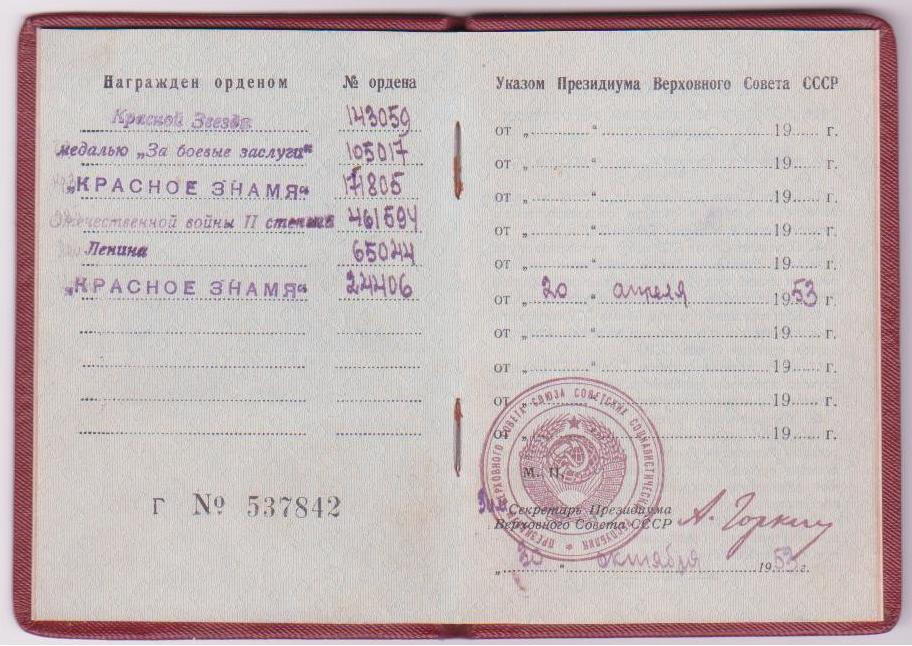 Награжден орденом № ордена
Красной Звезды 143059
медалью „За боевые заслуги“ 105017
„КРАСНОЕ ЗНАМЯ“ 171805
Отечественной войны II степени 461594
Ленина 65044
„КРАСНОЕ ЗНАМЯ“ 24406
Г № 537842
Указом Президиума Верховного Совета СССР
от „ “ 19 г.
от „ “ 19 г.
от „ “ 19 г.
от „ “ 19 г.
от „ “ 19 г.
от „ 20 “ апреля 1953 г.
от „ “ 19 г.
от „ “ 19 г.
от „ “ 19 г.
от „ “ 19 г.
М. П.
Секретарь Президиума
Верховного Совета СССР
А. Горкин
„ 30 “ октября 1953 г.